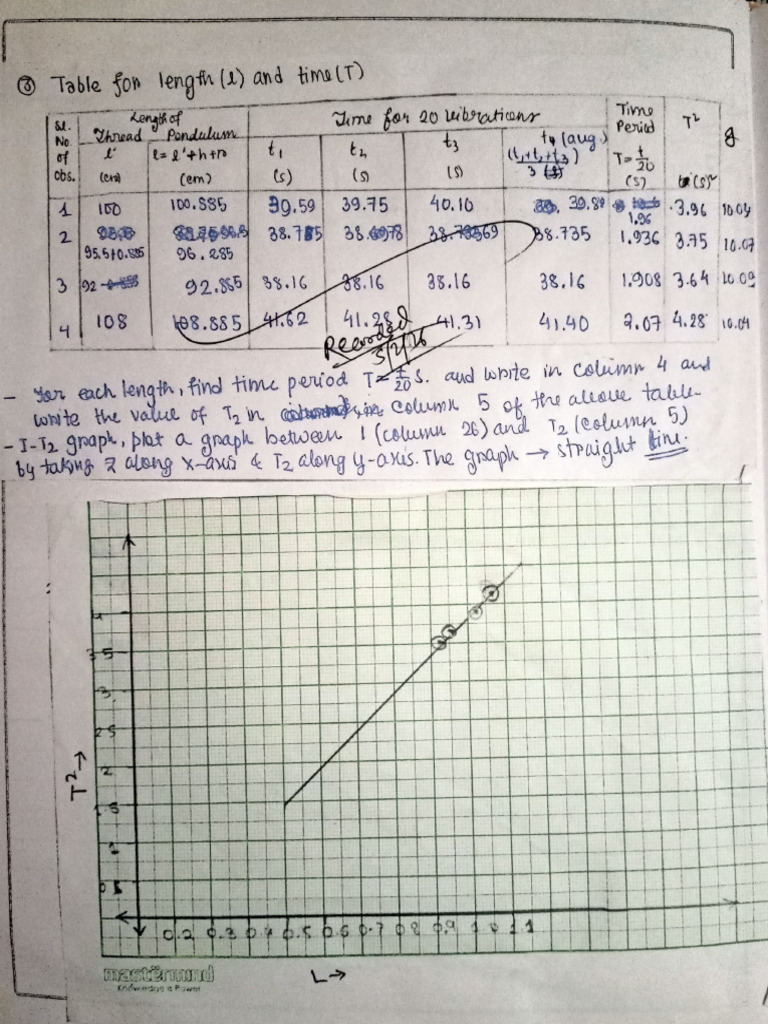 ③ Table for length (l) and time (T)
Sl. No. of obs. | Length of | Time for 20 vibrations | Time Period | T² | g
Thread l' (cm) | Pendulum l = l' + h + r (cm) | t₁ (s) | t₂ (s) | t₃ (s) | t₄ (aug.) (t₁+t₂+t₃) 3 | T = t/20 (s) | (s)²
1 | 100 | 100.885 | 39.59 | 39.75 | 40.10 | 39.81 | 1.96 | 3.96 | 10.04
2 | 95.5+0.885 | 96.285 | 38.785 | 38.735 | 1.936 | 3.75 | 10.07
3 | 92 | 92.885 | 38.16 | 38.16 | 38.16 | 38.16 | 1.908 | 3.64 | 10.09
4 | 108 | 108.885 | 41.62 | 41.28 | 41.31 | 41.40 | 2.07 | 4.28 | 10.04
Recorded
3/2/26
- for each length, find time period T = t/20 s. and write in column 4 and
write the value of T₂ in column 5 of the above table
- I-T₂ graph, plot a graph between 1 (column 26) and T₂ (column 5)
by taking z along x-axis & T₂ along y-axis. The graph → straight line.
4
3.5
3
2.5
2
1.5
1
0.5
T² →
0.2 0.3 0.4 0.5 0.6 0.7 0.8 0.9 1.0 1.1
L →
mastermind
Knowledge is Power